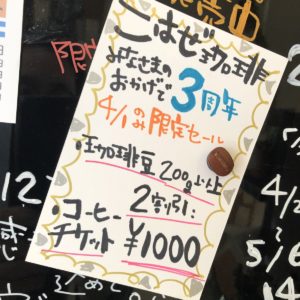 こはぜ珈琲
みなさまの
おかげで
3周年
4/1のみ限定セール
・珈琲豆 200g以上
2割引!
・コーヒー
チケット ¥1000
限
12